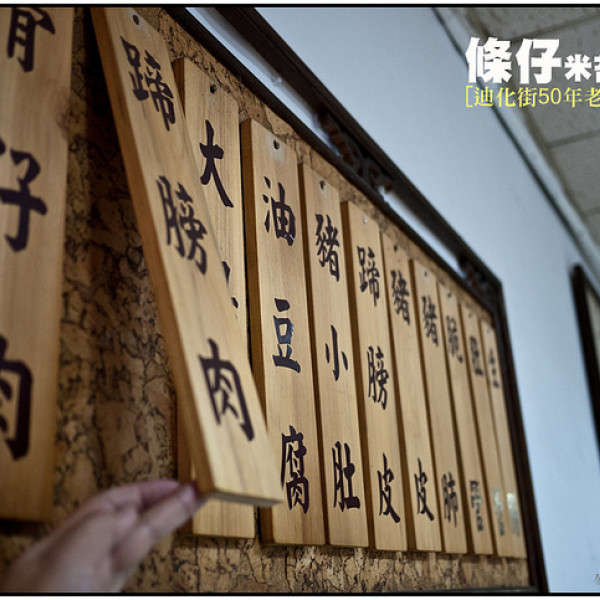 條仔米
[迪化街50年老
骨仔肉
蹄膀肉
大
油豆腐
豬小肚
蹄膀皮
豬皮
豬肺
生